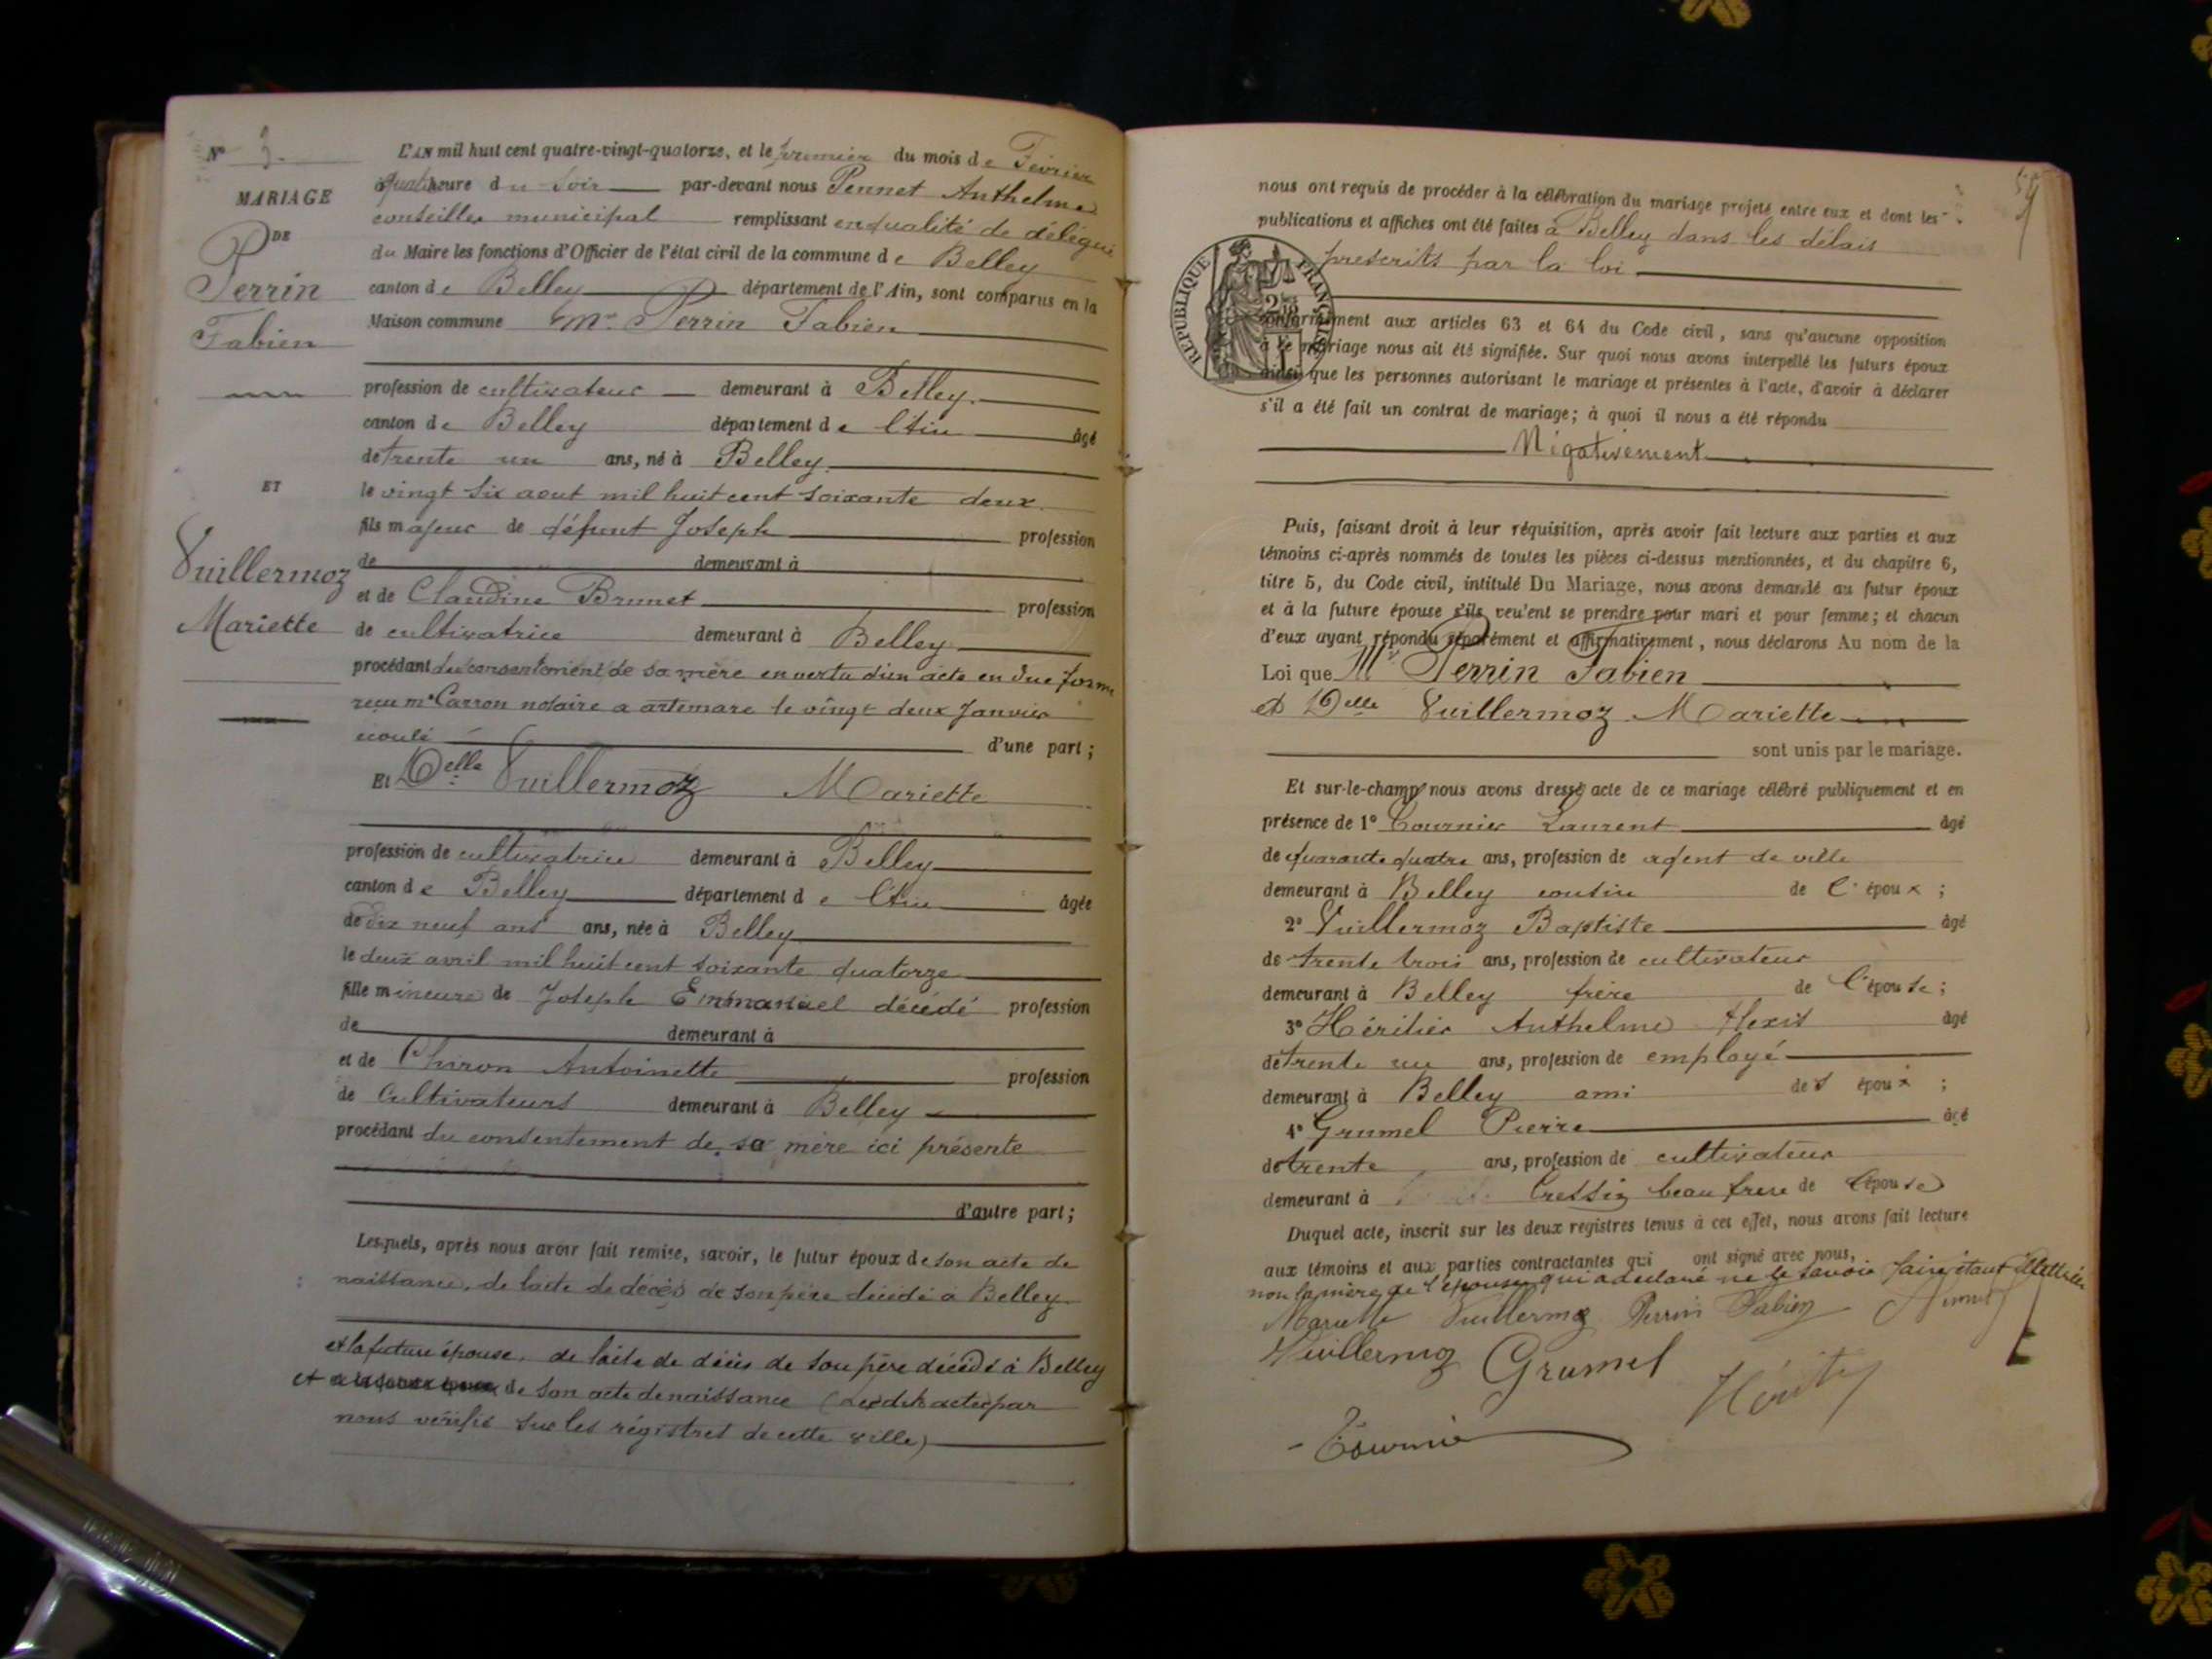 N° 3.
MARIAGE
DE
Perrin
Fabien
ET
Vuillermoz
Mariette
L'AN mil huit cent quatre-vingt-quatorze, et le premier du mois de Février
à quatre heure du soir par-devant nous Pennet Anthelme
conseiller municipal remplissant en qualité de délégué
du Maire les fonctions d'Officier de l'état civil de la commune de Belley
canton de Belley département de l'Ain, sont comparus en la
Maison commune Mr Perrin Fabien
profession de cultivateur demeurant à Belley.
canton de Belley département de l'Ain âgé
de trente un ans, né à Belley.
le vingt six aout mil huit cent soixante deux.
fils majeur de défunt Joseph profession
de demeurant à
et de Claudine Brunet profession
de cultivatrice demeurant à Belley
procédant du consentement de sa mère en vertu d'un acte en due forme
reçu me Carron notaire a artemare le vingt deux Janvier
écoulé d'une part;
Et Delle Vuillermoz Mariette
profession de cultivatrice demeurant à Belley
canton de Belley département de l'Ain âgée
de dix neuf ans ans, née à Belley
le deux avril mil huit cent soixante quatorze
fille mineure de Joseph Emmanuel décédé profession
de demeurant à
et de Chiron Antoinette profession
de Cultivateurs demeurant à Belley
procédant du consentement de sa mère ici présente
d'autre part;
Lesquels, après nous avoir fait remise, savoir, le futur époux de son acte de
naissance, de l'acte de décès de son père décédé à Belley
et la future épouse, de l'acte de décès de son père décédé à Belley
et de son acte de naissance (Lesdits actes par
nous vérifié sur les régistres de cette ville)
nous ont requis de procéder à la célébration du mariage projeté entre eux et dont les
publications et affiches ont été faites à Belley dans les délais
prescrits par la loi
RÉPUBLIQUE FRANÇAISE
conformément aux articles 63 et 64 du Code civil, sans qu'aucune opposition
à ce mariage nous ait été signifiée. Sur quoi nous avons interpellé les futurs époux
ainsi que les personnes autorisant le mariage et présentes à l'acte, d'avoir à déclarer
s'il a été fait un contrat de mariage; à quoi il nous a été répondu
Négativement
Puis, faisant droit à leur réquisition, après avoir fait lecture aux parties et aux
témoins ci-après nommés de toutes les pièces ci-dessus mentionnées, et du chapitre 6,
titre 5, du Code civil, intitulé Du Mariage, nous avons demandé au futur époux
et à la future épouse s'ils veulent se prendre pour mari et pour femme; et chacun
d'eux ayant répondu séparément et affirmativement, nous déclarons Au nom de la
Loi que Mr Perrin Fabien
et Delle Vuillermoz Mariette
sont unis par le mariage.
Et sur-le-champ nous avons dressé acte de ce mariage célébré publiquement et en
présence de 1° Tournier Laurent âgé
de quarante quatre ans, profession de agent de ville
demeurant à Belley cousin de l'époux;
2° Vuillermoz Baptiste âgé
de trente trois ans, profession de cultivateur
demeurant à Belley frère de l'épouse;
3° Héritier Anthelme Alexis âgé
de trente un ans, profession de employé
demeurant à Belley ami des époux;
4° Grumel Pierre âgé
de trente ans, profession de cultivateur
demeurant à Cressin beau frère de l'épouse
Duquel acte, inscrit sur les deux registres tenus à cet effet, nous avons fait lecture
aux témoins et aux parties contractantes qui ont signé avec nous,
non la mère de l'épouse qui a déclaré ne le savoir faire étant illettrée
Mariette Vuillermoz Perrin Fabien
Vuillermoz Grumel
Tournier